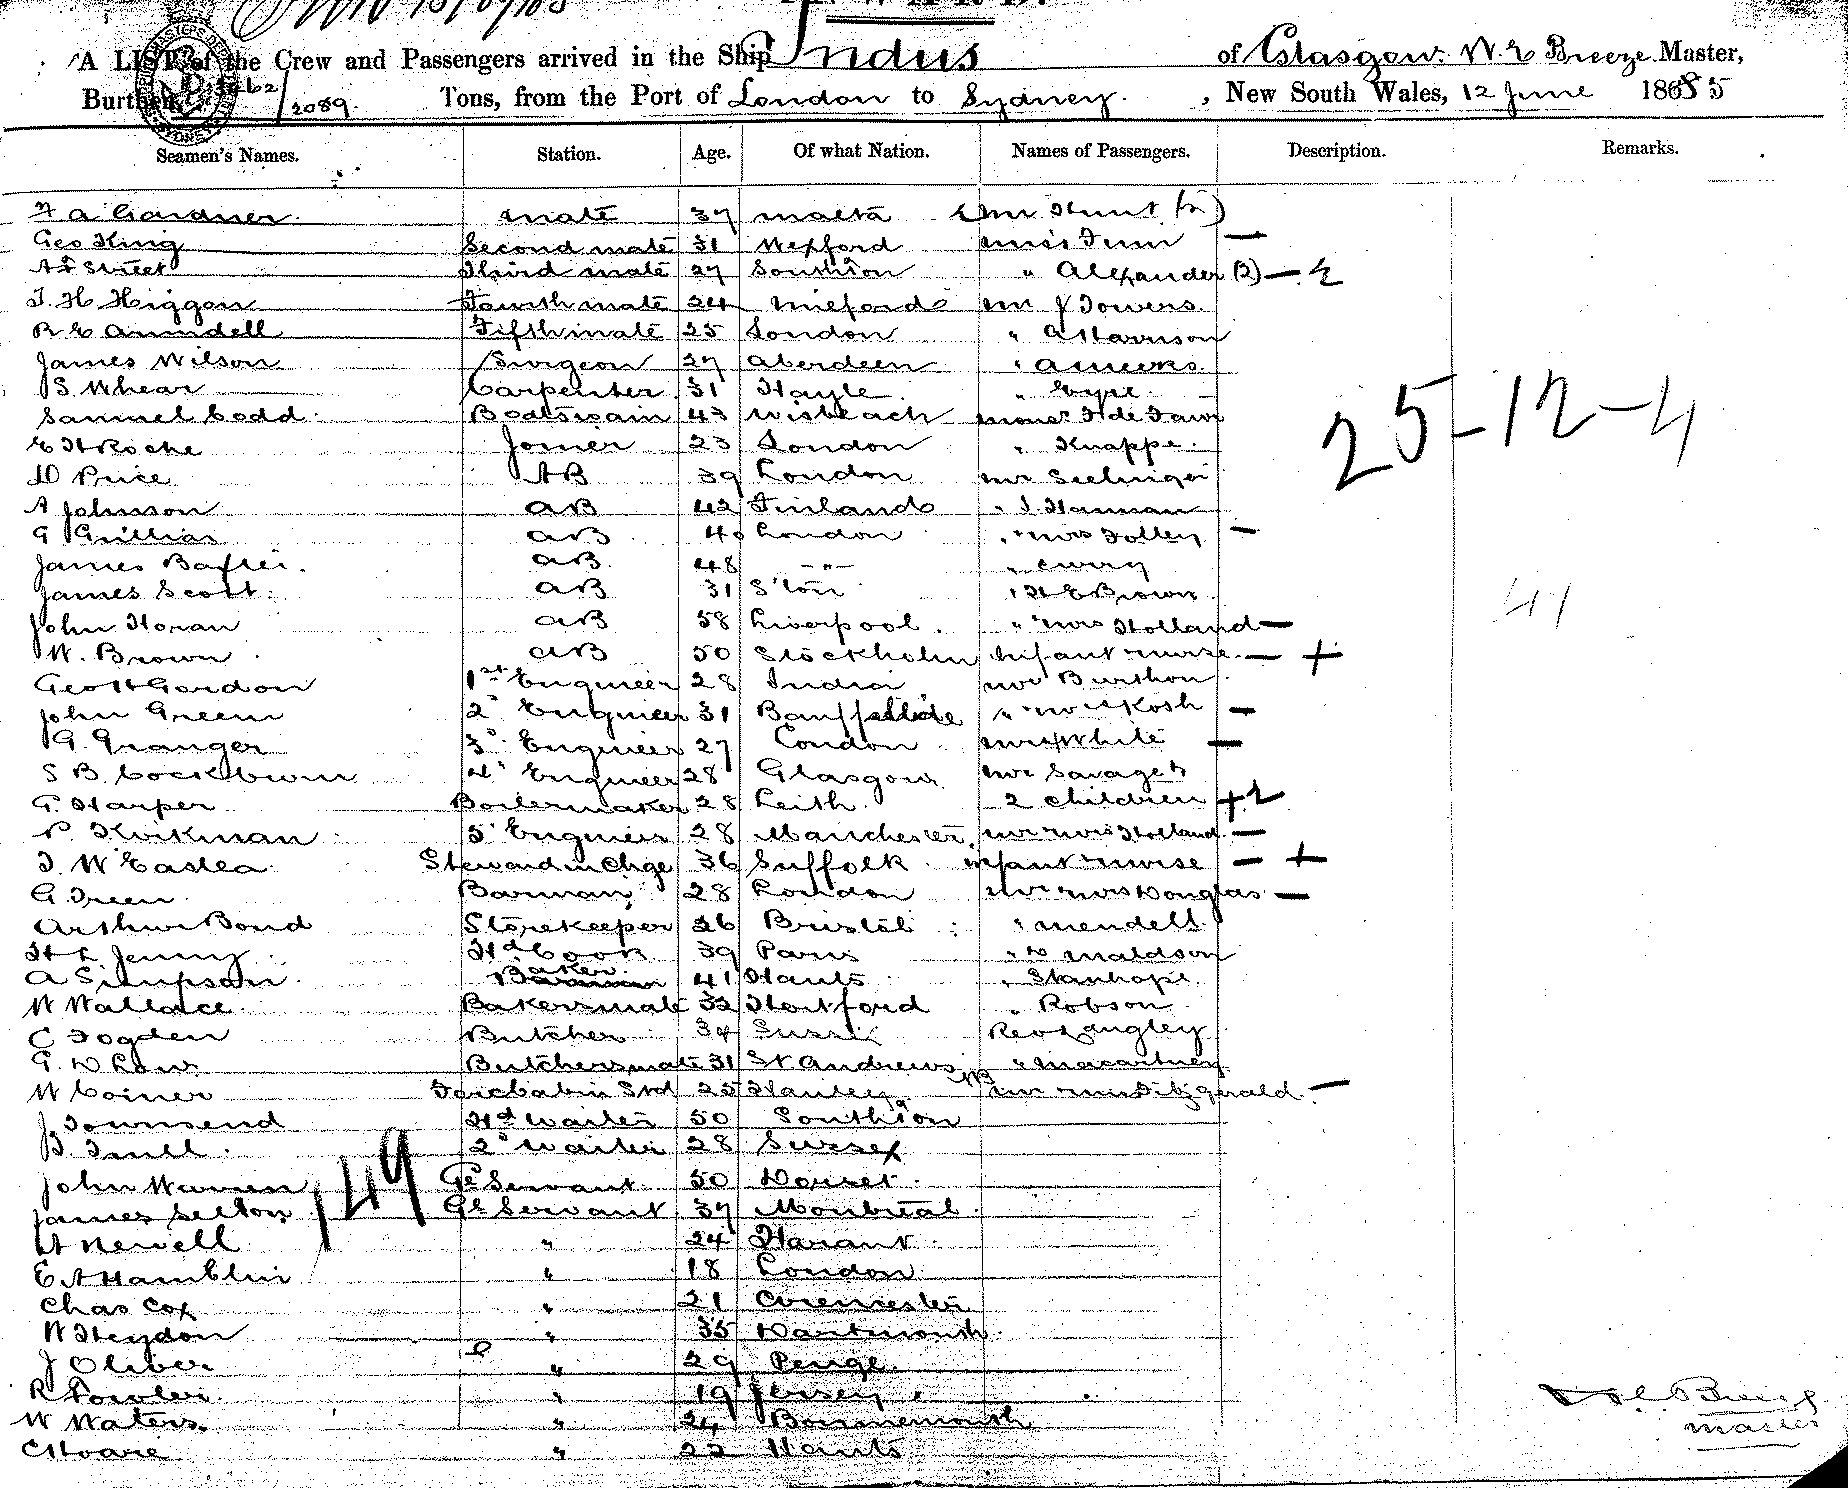 A LIST of the Crew and Passengers arrived in the Ship Indus of Glasgow. W. E Breeze Master,
Burthen / 2089. Tons, from the Port of London to Sydney. , New South Wales, 12 June 1885
Seamen's Names. Station. Age. Of what Nation. Names of Passengers. Description. Remarks.
Gardner mate 37 malta Mr Hunt (2)
Geo King Second mate 31 Wexford miss Tunn —
Street Third mate 27 Southton " Alexander (2) — 2
J. H Higgon Fourth mate 24 Milford mr J Towers
R E Arundell Fifth mate 25 London " A Harrison
James Wilson Surgeon 27 Aberdeen "
S. Whear Carpenter 31 Hayle "
Samuel Codd Boatswain 43 Wisbeach
E H Roche Joiner 23 London " Knappe
D Price AB 39 London mr Seelinger
A Johnson AB 42 Finland " J Hannan
G AB 40 London " mrs Folley —
James Baxter. AB 48 — " — "
James Scott AB 31 S'ton " H E Brown
John Horan AB 58 Liverpool. " mrs Holland —
W. Brown AB 50 Stockholm Infant nurse — +
Geo H Gordon 1st Engineer 28 India mr Burthon
John Green 2d Engineer 31 " Kosh —
G. Granger 3d Engineer 27 London mrs White —
S B. Cockburn 4" Engineer 28 Glasgow mr Savage &
G. Harper Boilermaker 28 Leith 2 children + 2
P. Kirkman 5" Engineer 28 Manchester mr mrs Holland —
J. W Eastea Steward in Chge 36 Suffolk infant nurse — +
G. Green Barman 28 London mr mrs Douglas —
Arthur Bond Storekeeper 26 Bristol " mendell
H L Jenny Hd Cook 39 Paris " maldson
A Simpson Baker 41 Hants " Stanhope
W Wallace Bakersmate 32 Hertford " Robson
C Fogden Butcher 34 Rev Langley
G. D Low Butchersmate 31 St Andrews NB " macartney
W Coiner Forecabin Std 25 Hanley mr mrs Fitzgerald —
J Townsend Hd Waiter 50 Southton
B. Trull 2d Waiter 28 Sussex
John Warren Gl Servant 50 Dorset
James Selton Gl Servant 37 Montreal
A Newell " 24 Havant
E A Hamblin " 18 London
Chas Cox " 21 Cirencester
W Heydon " 35 Dartmouth
J Oliber " 29 Penge
R Fowler " 19 Jersey
W Waters " 24 Bournemouth
C Hoare " 22 Hants
149
25-12-4
41
Breeze
master